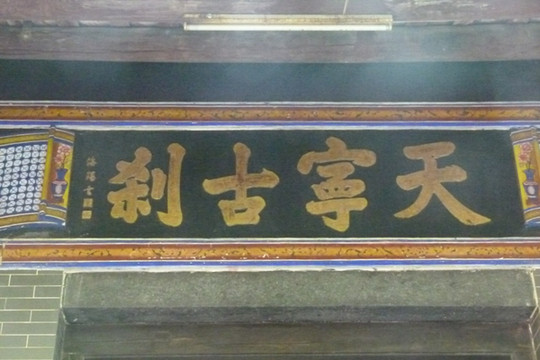 天寧古刹